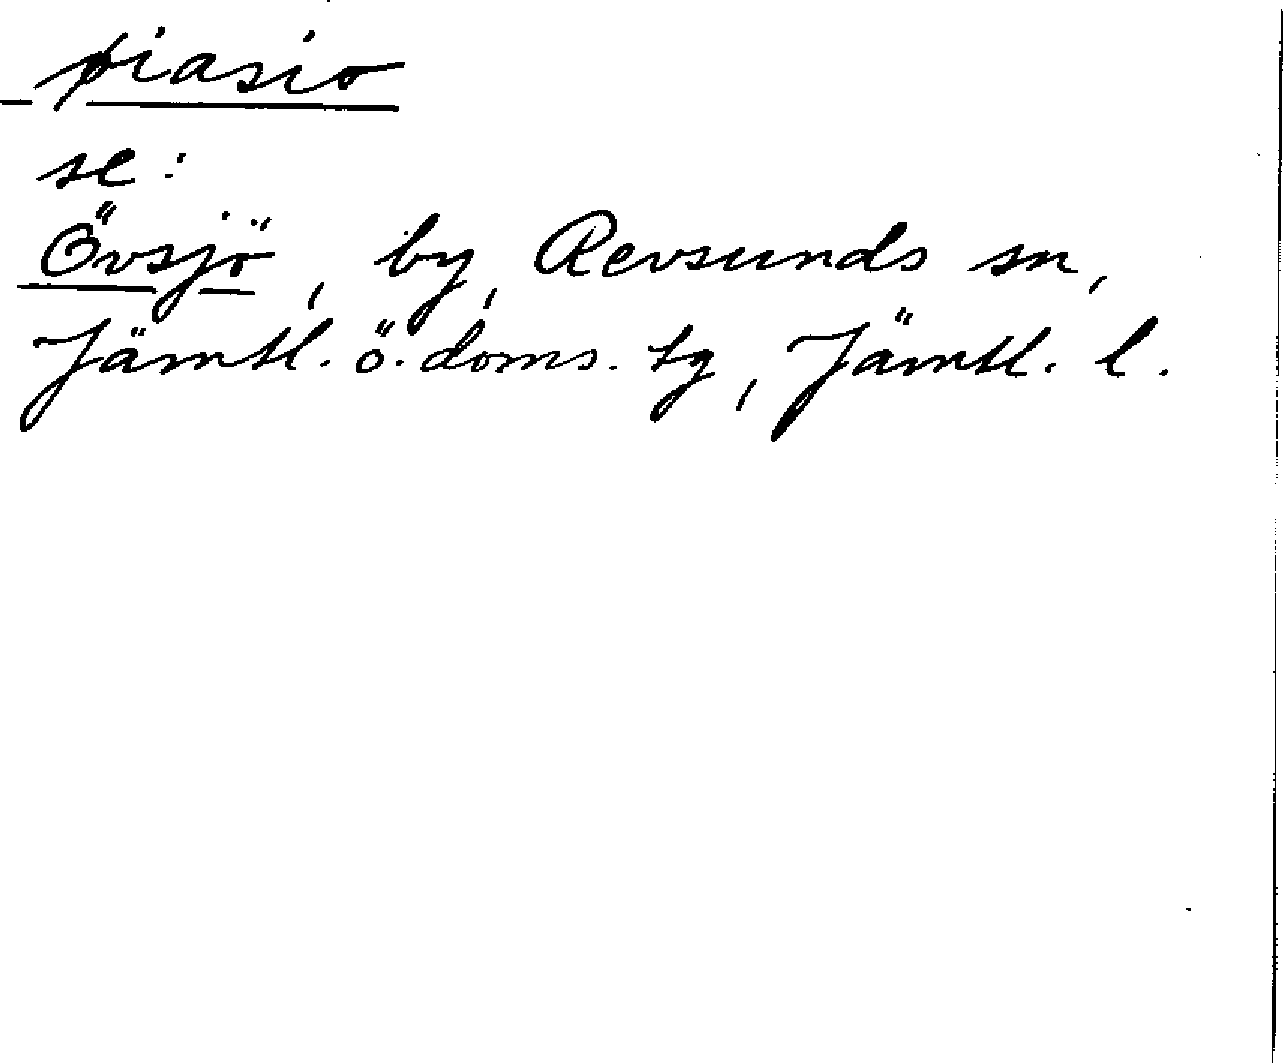 piasio
se:
Övsjö, by, Revsunds sn,
Jämtl. ö. doms. tg, Jämtl. l.